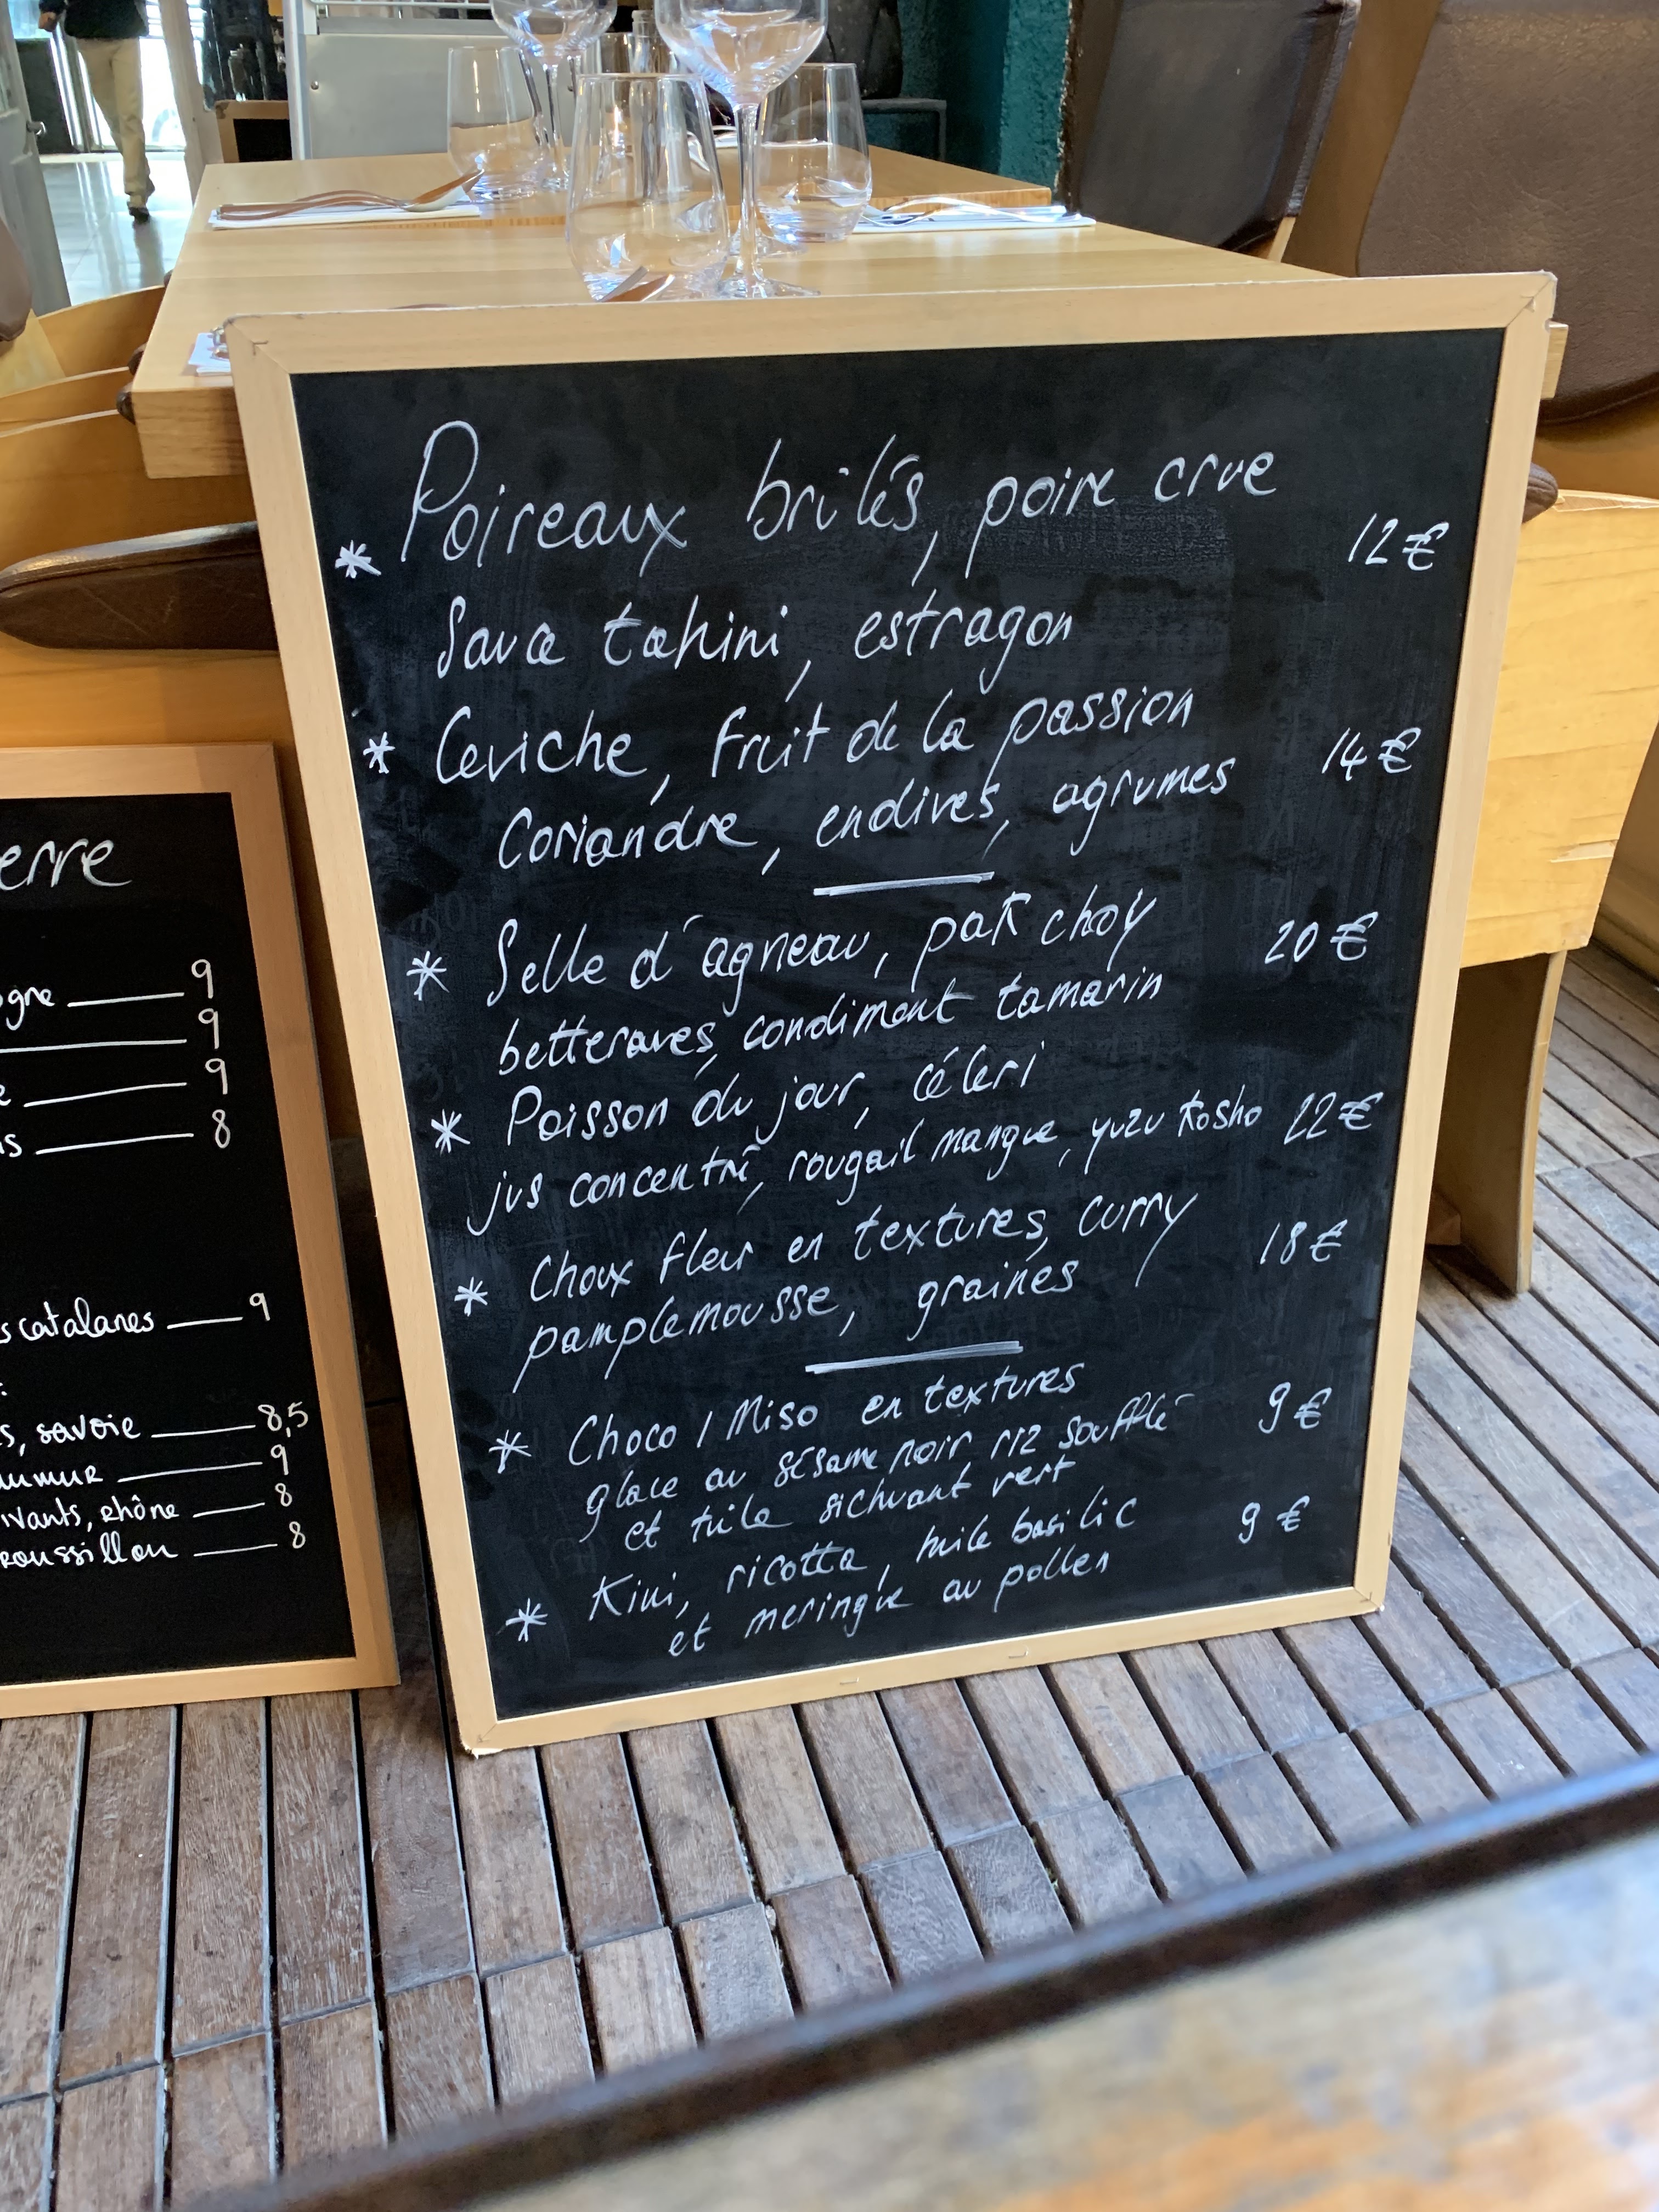 erre
ogne 9
9
e 9
is 8
s catalanes 9
:
s, savoie 8,5
aumur 9
ivants, rhône 8
roussillon 8
* Poireaux brûlés, poire crue 12€
Sauce tahini, estragon
* Ceviche, fruit de la passion 14€
Coriandre, endives, agrumes
* Selle d'agneau, pak choy 20€
betteraves, condiment tamarin
* Poisson du jour, céleri
jus concentré, rougail mangue, yuzu kosho 22€
* Choux fleur en textures, curry 18€
pamplemousse, graines
* Choco / Miso en textures 9€
glace au sésame noir riz soufflé
et tuile sichuant vert
* Kiwi, ricotta, huile basilic 9€
et meringue au pollen